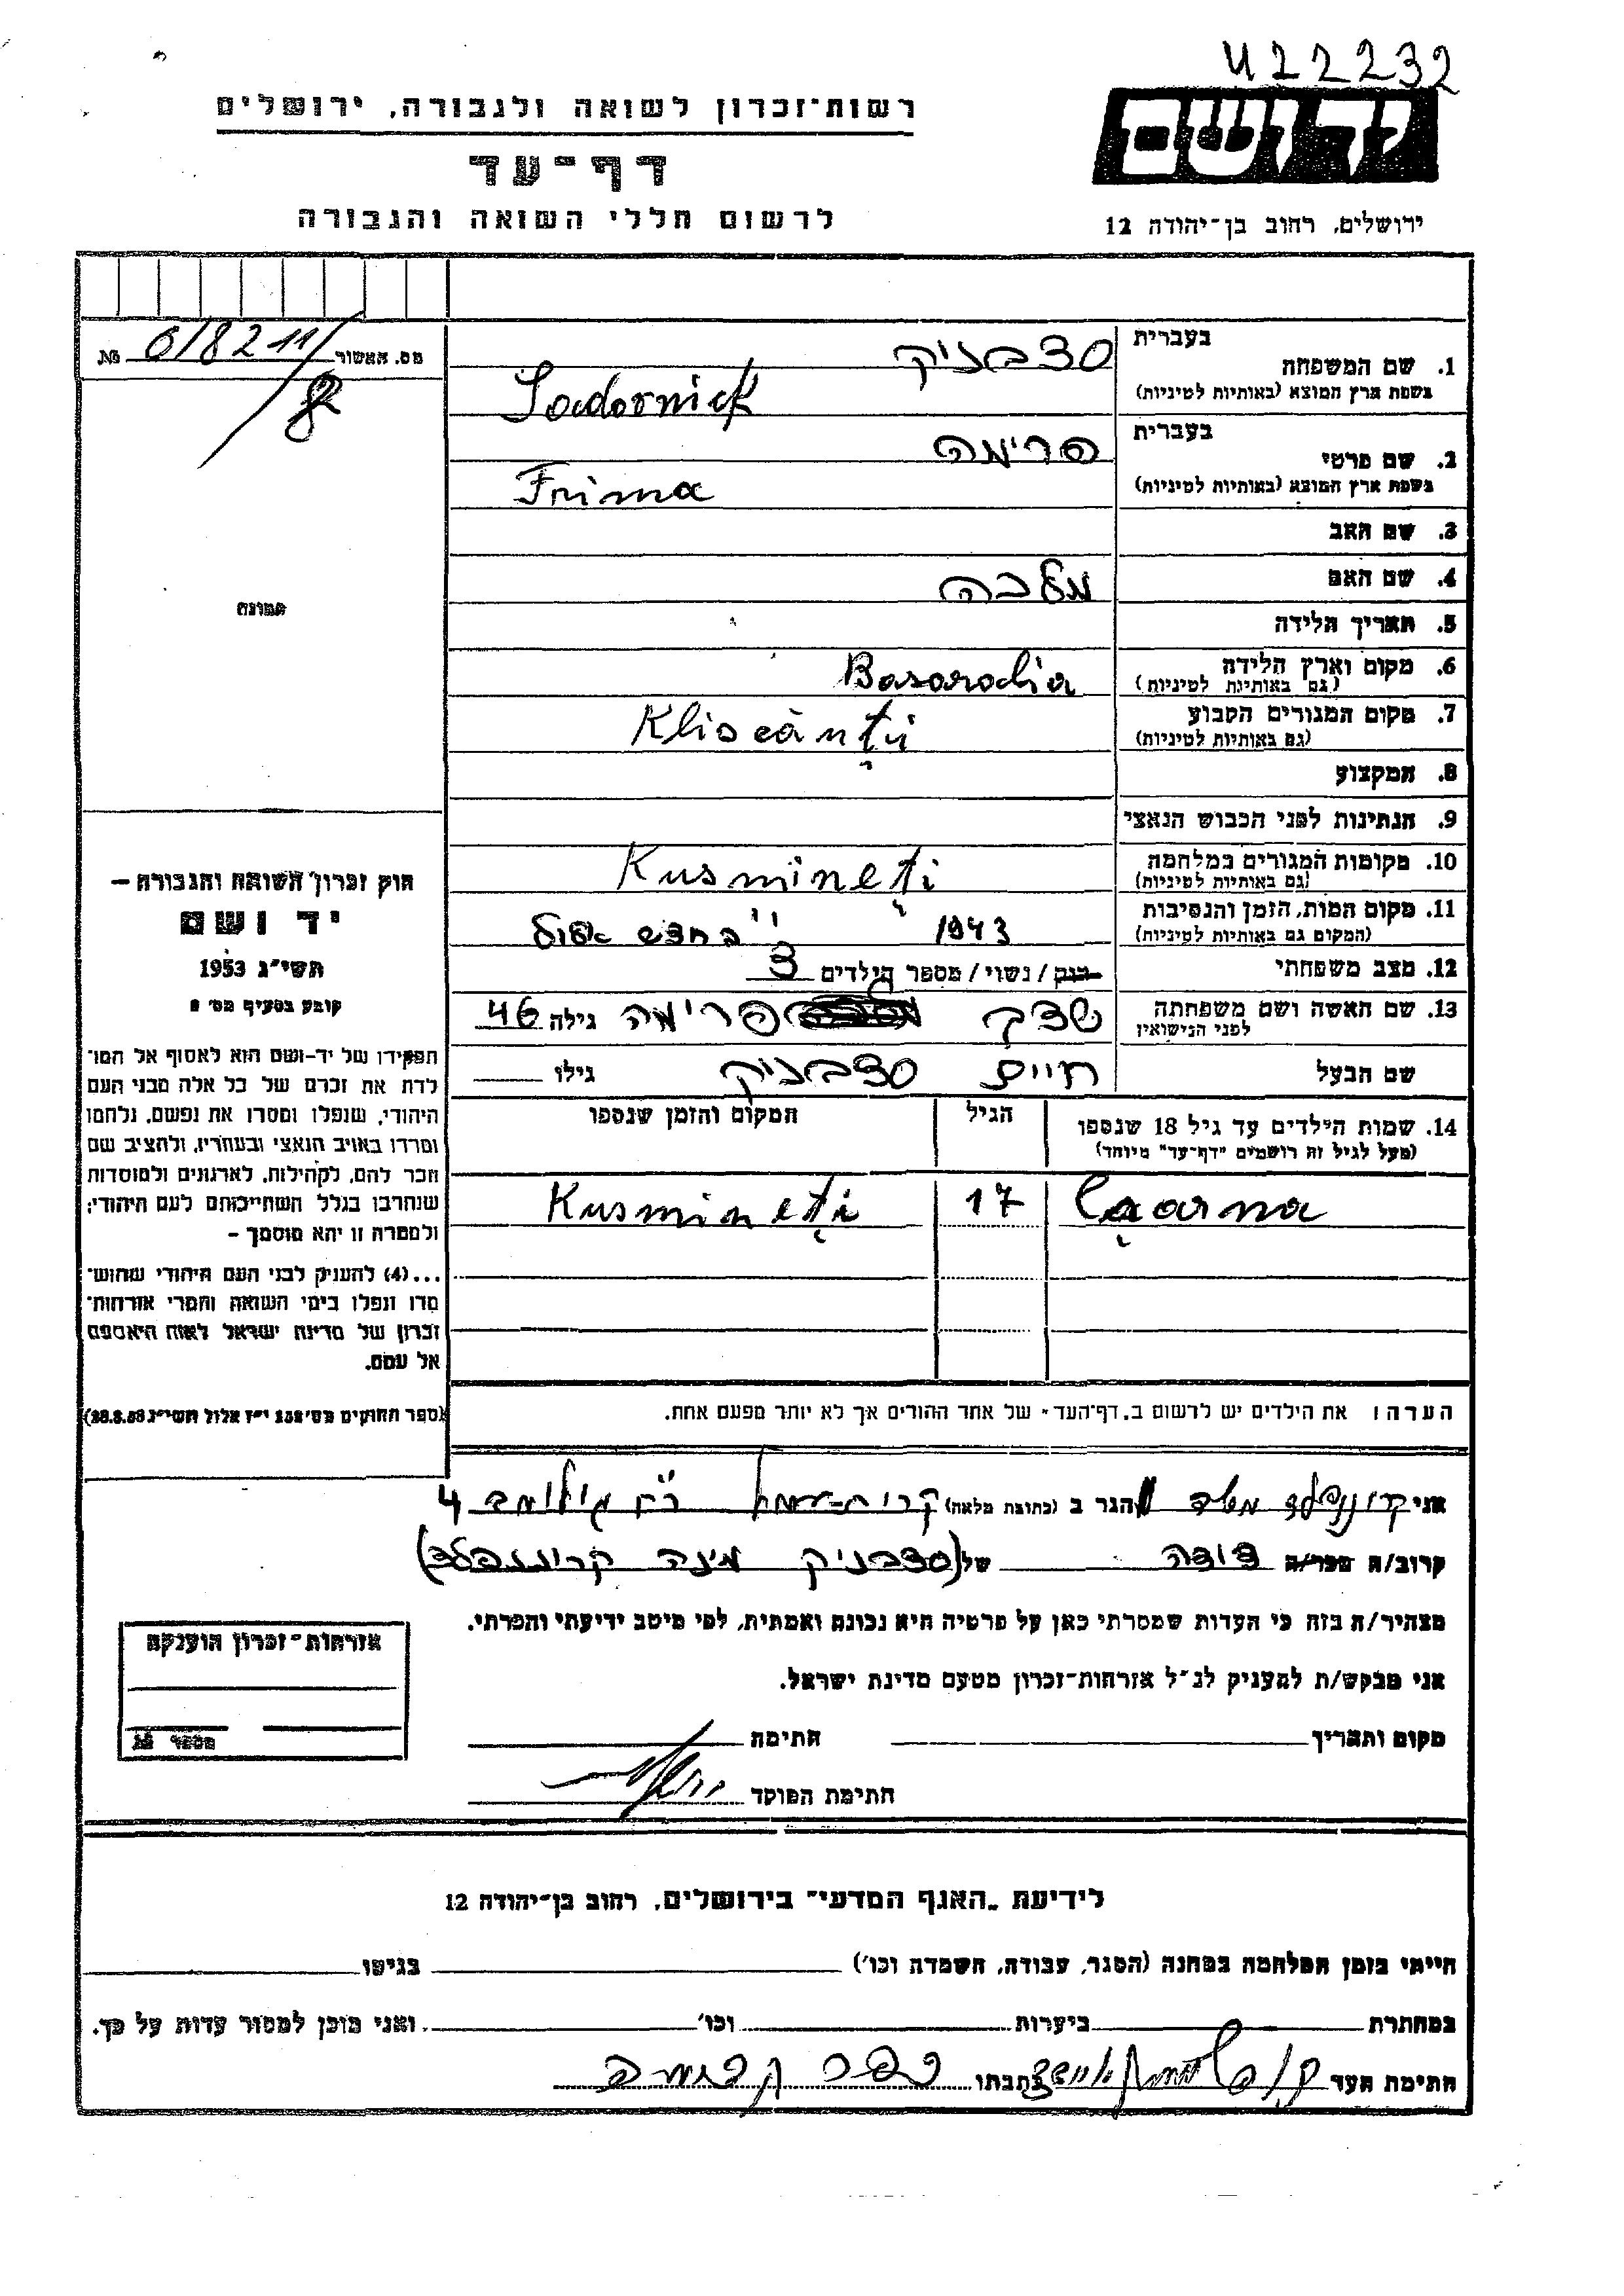 422232
יד ושם
רשות-זכרון לשואה ולגבורה, ירושלים
דף-עד
לרשום חללי השואה והגבורה
ירושלים, רחוב בן-יהודה 12
מס. האשור 6/8211 №
1. שם המשפחה בעברית סדבניק
בשפת ארץ המוצא (באותיות לטיניות) Sadovnick
2. שם פרטי בעברית פרימה
בשפת ארץ המוצא (באותיות לטיניות) Frima
3. שם האב
4. שם האם מלכה
5. תאריך הלידה
6. מקום וארץ הלידה (גם באותיות לטיניות) Basarabia
7. מקום המגורים הקבוע (גם באותיות לטיניות) Klișcăuți
8. המקצוע
9. הנתינות לפני הכבוש הנאצי
10. מקומות המגורים במלחמה (גם באותיות לטיניות) Kusmineți
11. מקום המות, הזמן והנסיבות (המקום גם באותיות לטיניות) 1943 בחדש
12. מצב משפחתי רוק / נשוי / מספר הילדים 3
13. שם האשה ושם משפחתה לפני הנישואין פרימה גילה 46
שם הבעל חיים סדבניק גילו
14. שמות הילדים עד גיל 18 שנספו (מעל לגיל זה רושמים "דף-עד" מיוחד) הגיל המקום והזמן שנספו
17 Kusmineți
הערה: את הילדים יש לרשום ב„דף-העד" של אחד ההורים אך לא יותר מפעם אחת.
תמונה
חוק זכרון השואה והגבורה –
יד ושם
תשי"ג 1953
קובע בסעיף מס' 2
תפקידו של יד-ושם הוא לאסוף אל המו-
לדת את זכרם של כל אלה מבני העם
היהודי, שנפלו ומסרו את נפשם, נלחמו
ומרדו באויב הנאצי ובעוזריו, ולהציב שם
וזכר להם, לקהילות, לארגונים ולמוסדות
שנחרבו בגלל השתייכותם לעם היהודי;
ולמטרה זו יהא מוסמך –
...(4) להעניק לבני העם היהודי שהוש-
מדו ונפלו בימי השואה והמרי אזרחות-
זכרון של מדינת ישראל לאות היאספם
אל עמם.
(ספר החוקים מס' 132 י"ז אלול תשי"ג 28.8.53)
אני הגר ב (כתובת מלאה) 4
קרוב/ה מכר/ה דודה של (סדבניק מינה קרוננפלד)
מצהיר/ה בזה כי העדות שמסרתי כאן על פרטיה היא נכונה ואמתית, לפי מיטב ידיעתי והכרתי.
אני מבקש/ת להעניק לנ"ל אזרחות-זכרון מטעם מדינת ישראל.
מקום ותאריך חתימה
חתימת הפוקד
אזרחות-זכרון הוענקה
מספר №
לידיעת „האגף המדעי" בירושלים, רחוב בן-יהודה 12
הייתי בזמן המלחמה במחנה (הסגר, עבודה, השמדה וכו') בגיטו
במחתרת ביערות וכו' ואני מוכן למסור עדות על כך.
חתימת העד כתבתו